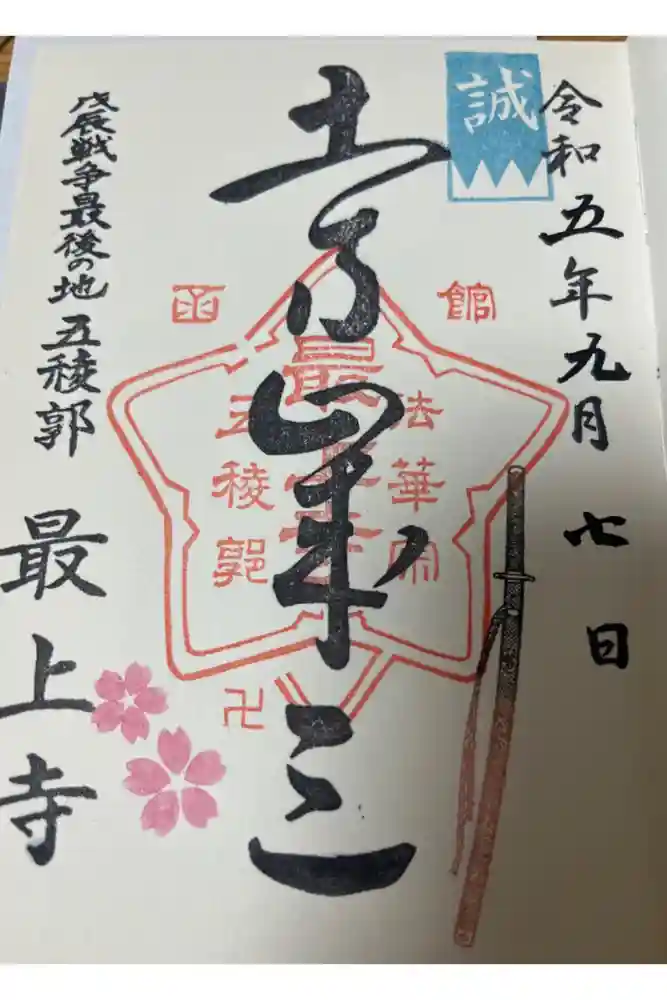 令和五年九月七日
誠
函館
法華宗
最上寺
五稜郭
土方歳三
卍
戊辰戦争最後の地 五稜郭
最上寺